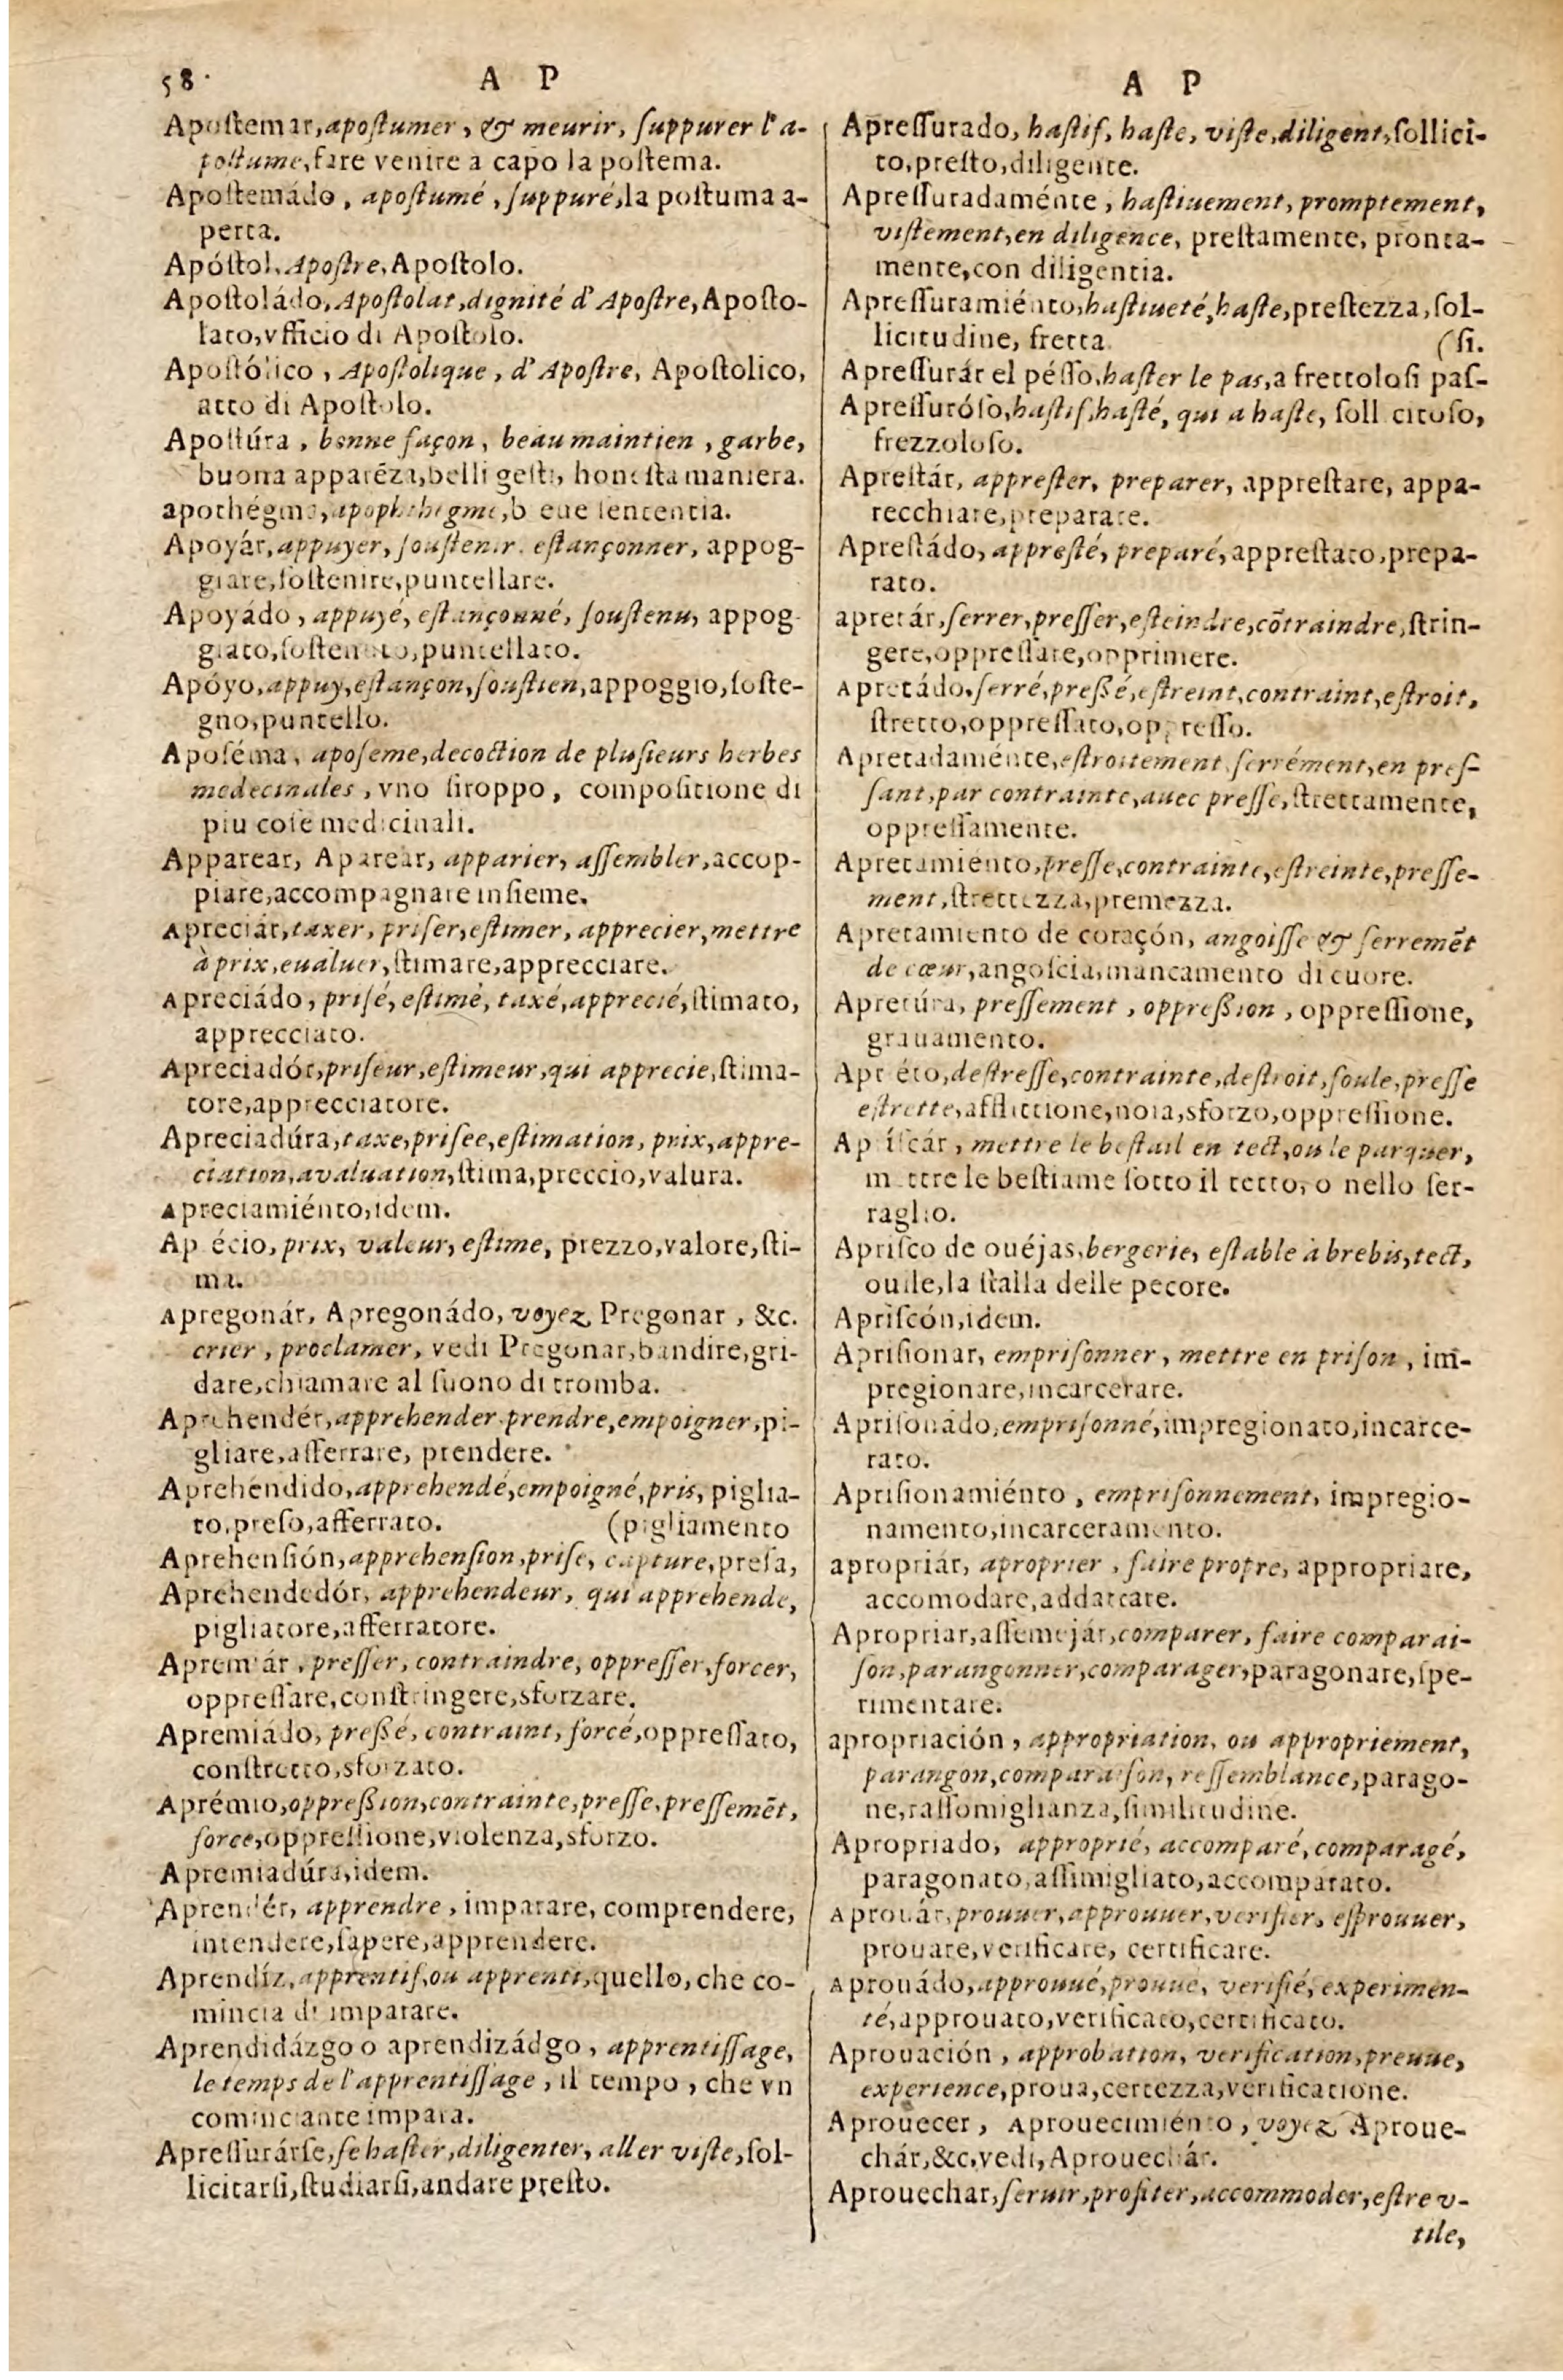 58.
A P
Apostemar, apostumer, & meurir, suppurer l'a-
postume, fare venire a capo la postema.
Apostemádo, apostumé, suppuré, la postuma a-
perta.
Apóstol, Apostre, Apostolo.
Apostoládo, Apostolat, dignité d'Apostre, Aposto-
lato, vfficio di Apostolo.
Apostólico, Apostolique, d'Apostre, Apostolico,
atto di Apostolo.
Apostúra, bonne façon, beau maintien, garbe,
buona apparẽza, belli gesti, honesta maniera.
apothégma, apophthegme, b eue sententia.
Apoyár, appuyer, soustenir, estançonner, appog-
giare, sostenire, puntellare.
Apoyádo, appuyé, estançonné, soustenu, appog-
giato, sostenuto, puntellato.
Apóyo, appuy, estançon, soustien, appoggio, soste-
gno, puntello.
Aposéma, aposeme, decoction de plusieurs herbes
medecinales, vno siroppo, compositione di
piu cose medicinali.
Apparear, Aparear, apparier, assembler, accop-
piare, accompagnare insieme.
Apreciár, taxer, priser, estimer, apprecier, mettre
à prix, eualuer, stimare, apprecciare.
Apreciádo, prisé, estimé, taxé, apprecié, stimato,
apprecciato.
Apreciadór, priseur, estimeur, qui apprecie, stima-
tore, apprecciatore.
Apreciadúra, taxe, prisee, estimation, prix, appre-
ciation, avaluation, stima, preccio, valura.
Apreciamiénto, idem.
Ap écio, prix, valeur, estime, prezzo, valore, sti-
ma.
Apregonár, Apregonádo, voyez Pregonar, &c.
crier, proclamer, vedi Pregonar, bandire, gri-
dare, chiamare al suono di tromba.
Aprehendér, apprehender, prendre, empoigner, pi-
gliare, afferrare, prendere.
Aprehéndido, apprehendé, empoigné, pris, piglia-
to, preso, afferrato. (pigliamento
Aprehensión, apprehension, prise, capture, presa,
Aprehendedór, apprehendeur, qui apprehende,
pigliatore, afferratore.
Apremiár, presser, contraindre, oppresser, forcer,
oppressare, constringere, sforzare.
Apremiádo, pressé, contraint, forcé, oppressato,
constretto, sforzato.
Aprémio, oppression, contrainte, presse, pressemẽt,
force, oppressione, violenza, sforzo.
Apremiadúra, idem.
Aprendér, apprendre, imparare, comprendere,
intendere, sapere, apprendere.
Aprendíz, apprentif, ou apprenti, quello, che co-
mincia di imparare.
Aprendidázgo o aprendizádgo, apprentissage,
le temps de l'apprentissage, il tempo, che vn
cominciante impara.
Apressurárse, se haster, diligenter, aller viste, sol-
licitarsi, studiarsi, andare presto.
A P
Apressurado, hastif, haste, viste, diligent, sollici-
to, presto, diligente.
Apressuradaménte, hastiuement, promptement,
vistement, en diligence, prestamente, pronta-
mente, con diligentia.
Apressuramiénto, hastiueté, haste, prestezza, sol-
licitudine, fretta. (si.
Apressurár el pésso, haster le pas, a frettolosi pas-
Apressuróso, hastif, hasté, qui a haste, soll citoso,
frezzoloso.
Aprestár, apprester, preparer, apprestare, appa-
recchiare, preparare.
Aprestádo, appresté, preparé, apprestato, prepa-
rato.
apretár, serrer, presser, esteindre, cõtraindre, strin-
gere, oppressare, opprimere.
Apretádo, serré, pressé, estreint, contraint, estroit,
stretto, oppressato, oppresso.
Apretadaménte, estroitement, serrément, en pres-
sant, par contrainte, auec presse, strettamente,
oppressamente.
Apretamiénto, presse, contrainte, estreinte, presse-
ment, strettezza, premezza.
Apretamiento de coraçón, angoisse & serremẽt
de cœur, angoscia, mancamento di cuore.
Apretúra, pressement, oppression, oppressione,
grauamento.
Apr éto, destresse, contrainte, destroit, foule, presse
estrette, afflittione, noia, sforzo, oppressione.
Ap íscár, mettre le bestail en tect, ou le parquer,
mettere le bestiame sotto il tetto, o nello ser-
raglio.
Aprisco de ouéjas, bergerie, estable à brebis, tect,
ouile, la stalla delle pecore.
Apriscón, idem.
Aprisionar, emprisonner, mettre en prison, im-
pregionare, incarcerare.
Aprisonádo, emprisonné, impregionato, incarce-
rato.
Aprisionamiénto, emprisonnement, impregio-
namento, incarceramento.
apropriár, aproprier, faire propre, appropriare,
accomodare, addattare.
Apropriar, assemejár, comparer, faire comparai-
son, parangonner, comparager, paragonare, spe-
rimentare.
apropriación, appropriation, ou appropriement,
parangon, comparaison, ressemblance, parago-
ne, rassomiglianza, similitudine.
Apropriado, approprié, accomparé, comparagé,
paragonato, assimigliato, accomparato.
Aprouár, prouuer, approuuer, verifier, esprouuer,
prouare, verificare, certificare.
Aprouádo, approuué, prouué, verifié, experimen-
té, approuato, verificato, certificato.
Aprouación, approbation, verification, preuue,
experience, proua, certezza, verificatione.
Aprouecer, Aprouecimiénto, voyez Aproue-
chár, &c. vedi, Aprouechár.
Aprouechar, seruir, profiter, accommoder, estre v-
tile,